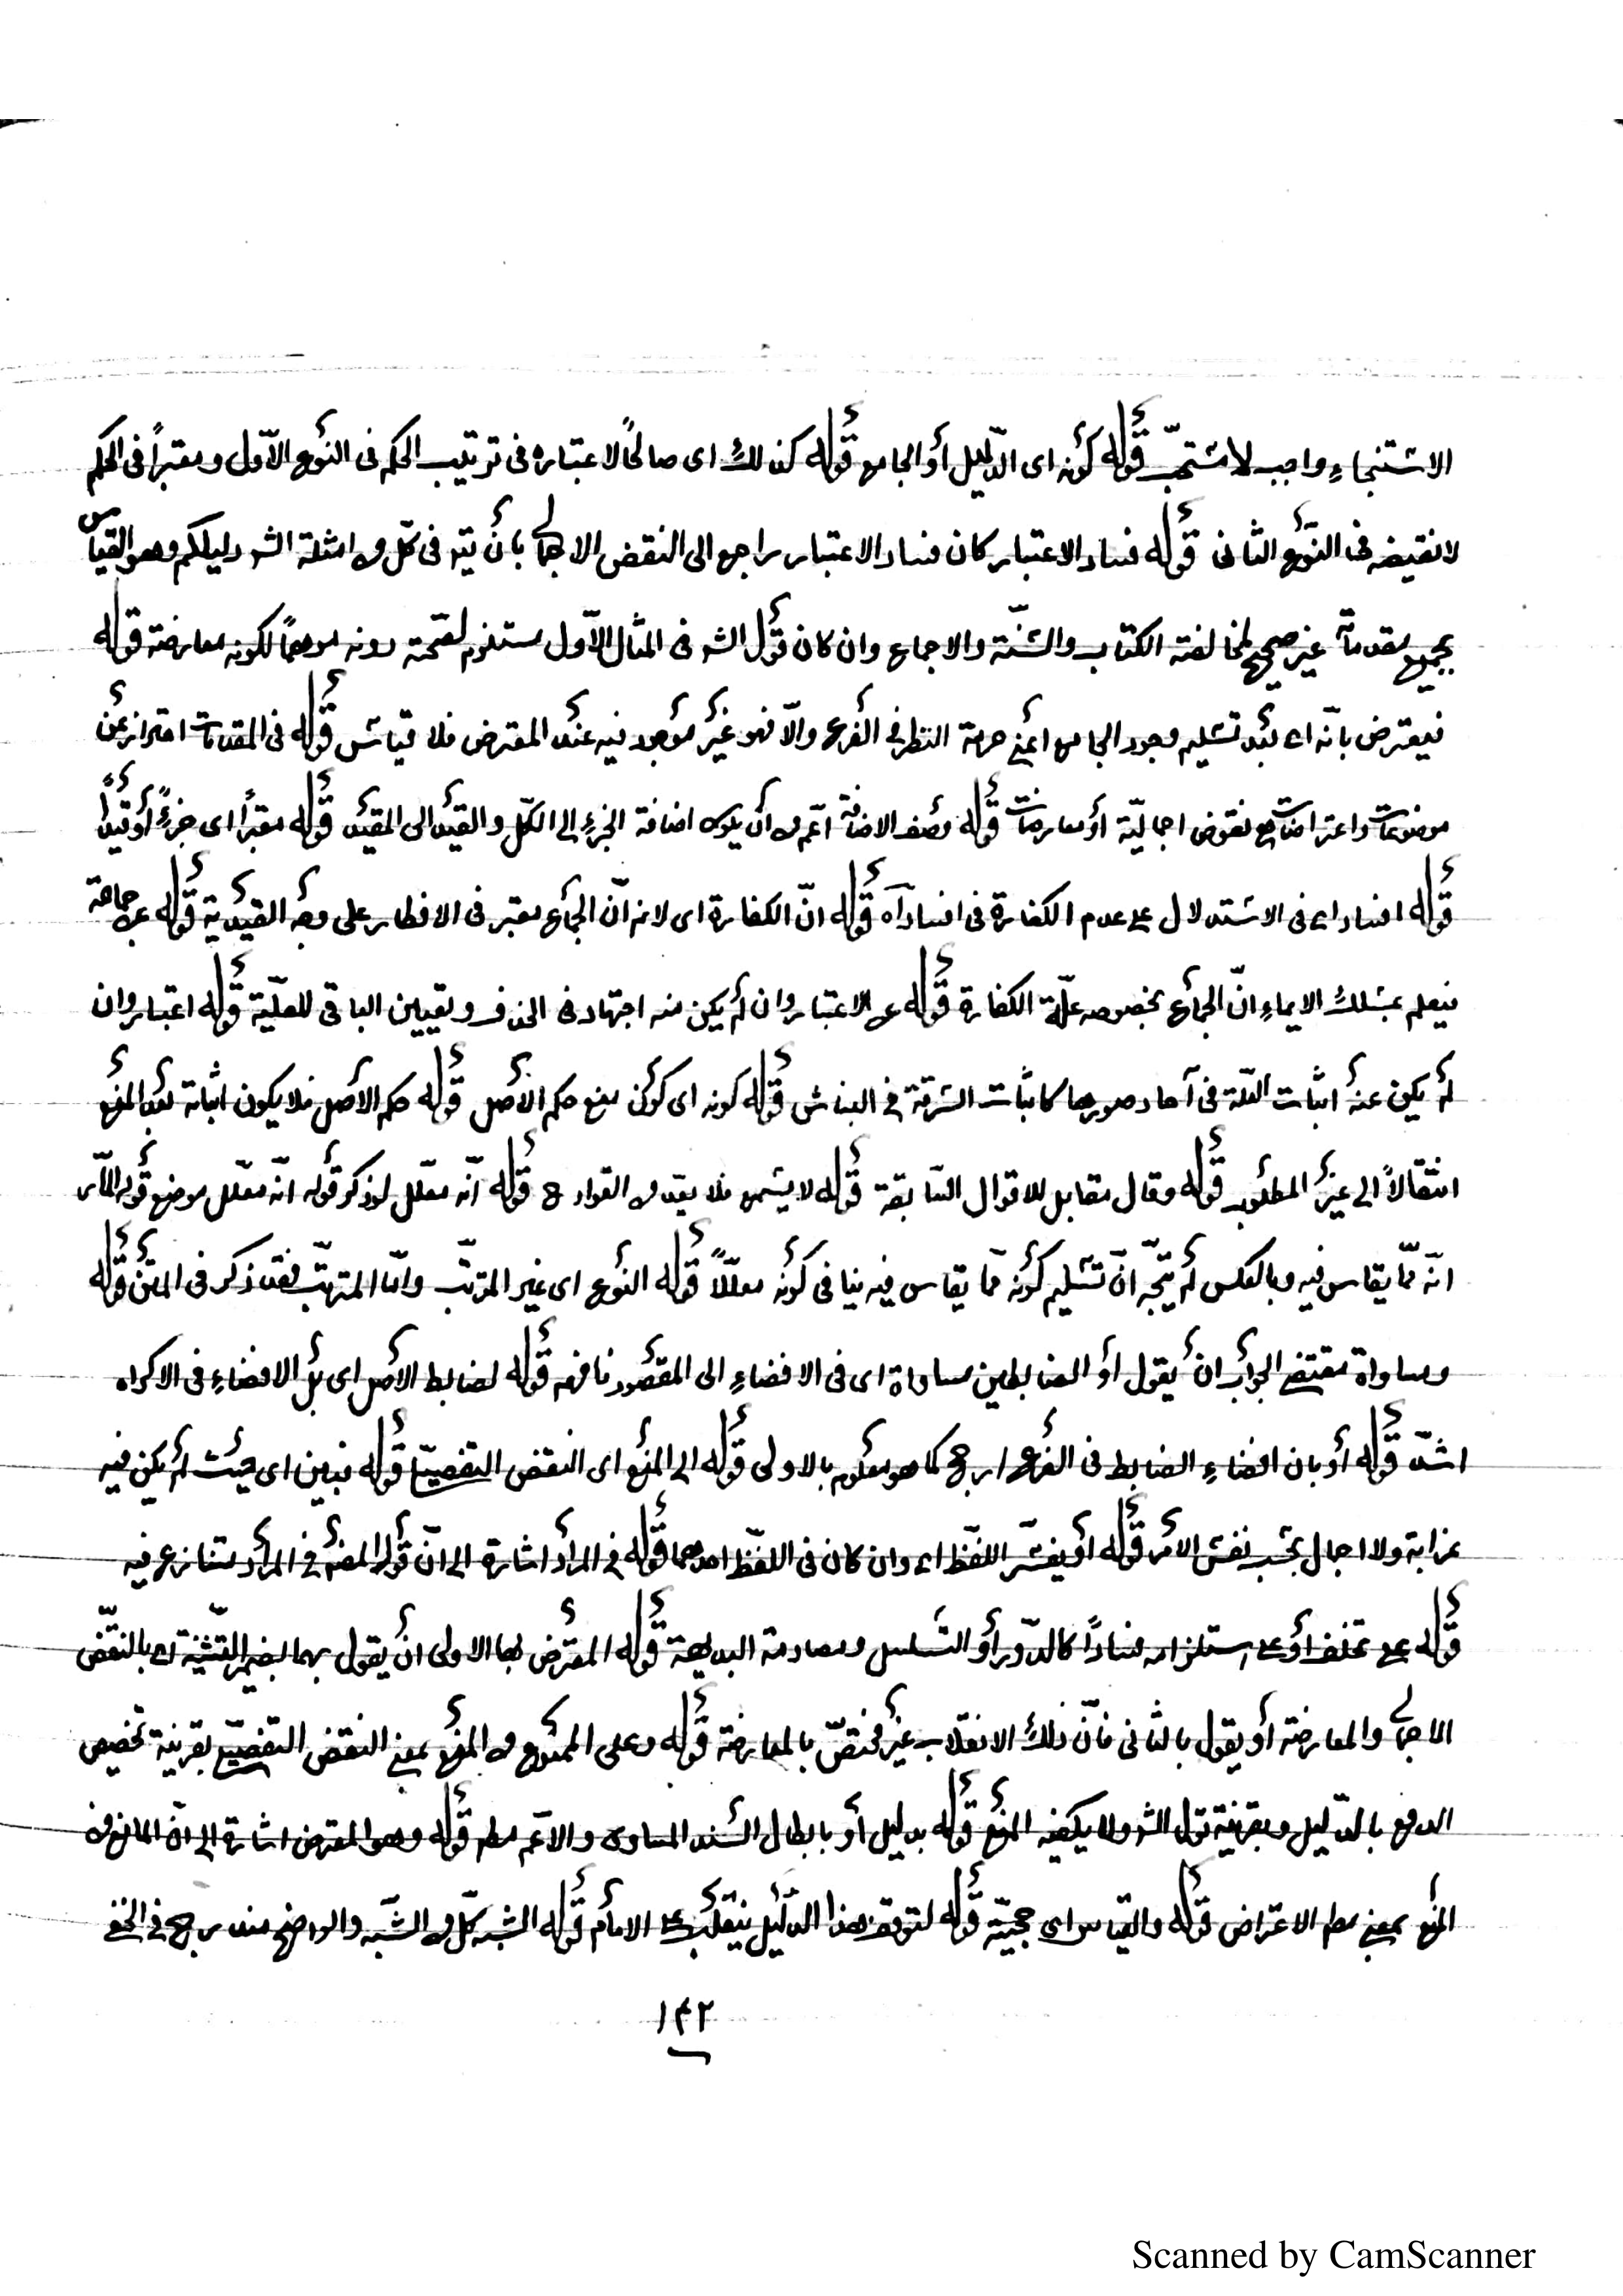 الاستنجاء واجب لا مستحبّ قوله كونه اى الدّليل أو الجامع قوله كذلك اى صالحًا لاعتباره فى ترتيب الحكم فى النوع الاوّل ومعتبراً فى الحكم
لا نقيضه فى النوع الثانى قوله فساد الاعتبار كان فساد الاعتبار راجع الى النقض الاجمالى بأن يقه فى كلّ من امثلة الشر دليلكم وهو القياس
بجميع مقدماته غير صحيح لمخالفته الكتاب والسّنّة والاجماع وان كان قول الشر فى المثال الاوّل مستلزم لصحّته دونه موهمًا لكونه معارضة قوله
فيعترض بانّه اى بعد تسليم وجود الجامع اعنى حرمة النظر فى الفرع والّا فهو غير موجود فيه عند المعترض فلا قياس قوله فى المقدمات احتراز عن
موضوعات واعتراضات مع نقوض اجماليّة أو معارضات قوله وصف الاضافة اعم من أن يكون اضافة الجزء الى الكلّ والقيد الى المقيّد قوله معتبراً اى جزءً أو قيداً
قوله افساد اى فى الاستدلال على عدم الكفارة فى افساده قوله انّ الكفارة اى لانم انّ الجماع معتبر فى الافطار على وجه القيديّة قوله عن جماعة
فيعلم بمسلك الايماء انّ الجماع بخصوصه علّة الكفارة قوله عن الاعتبار وان لم يكن منه اجتهاد فى الحذف وتعيين الباقى للعلّية قوله اعتبار وان
لم يكن عنه اثبات العلّة فى آحاد صورها كاثبات السّرقة فى النباش قوله كونه اى كون منع حكم الأصل قوله حكم الأصل فلا يكون اثباته بعد المنع
انتقالاً الى غير المطلوب قوله وقال مقابل للاقوال السّابقة قوله لا يسمع فلا يعدّ من القوادح قوله انّه معلّل لو ذكر قوله انّه معلّل موضع قوله المارّ
انّه ممّا يقاس فيه وبالعكس لم يتّجه انّ تسليم كونه ممّا يقاس فيه ينافى كونه معلّلاً قوله النوع اى غير المترتّب وامّا المترتّب فقد ذكر فى المتن قوله
ومساواة مقتضى الجواب ان يقول أو الضابطين مساواة اى فى الافضاء الى المقصود فافهم قوله لضابط الأصل اى بل الافضاء فى الاكراه
اشدّ قوله أو بان افضاء الضابط فى الفرع ارجح كما هو معلوم بالاولى قوله الى المنع اى النقض التفصيلىّ قوله فيبين اى حيث لم يكن فيه
غرابة ولا اجمال بحسب نفس الأمر قوله أو يفسّر اللفظ اى وان كان فى اللفظ احدهما قوله فى المراد اشارة الى انّ قوله فى المراد متنازع فيه
قوله على تخلف أو على استلزامه فسادًا كالدّور أو التسلسل ومصادمة البديهة قوله المعترض بها الاولى ان يقول بهما بضمير التثنية اى بالنقض
الاجمالى والمعارضة أو يقول بالثانى فانّ ذلك الانقلاب غير مختصّ بالمعارضة قوله وعلى الممنوع من المنع بمعنى النقض التفصيلىّ بقرينة تخصيص
الدفع بالدّليل وبقرينة قول الشر ولا يكفيه المنع قوله بدليل أو بابطال السّند المساوى والاعم مطم قوله وهو المعترض اشارة الى انّ المانع من
المنع بمعنى مطم الاعتراض قوله والقياس اى حجيّته قوله لتوقف هذا الدّليل ينقلب على الامام قوله الشبه كلّ من الشّبه والواضح مندرج فى الخفى
١٤٢
Scanned by CamScanner